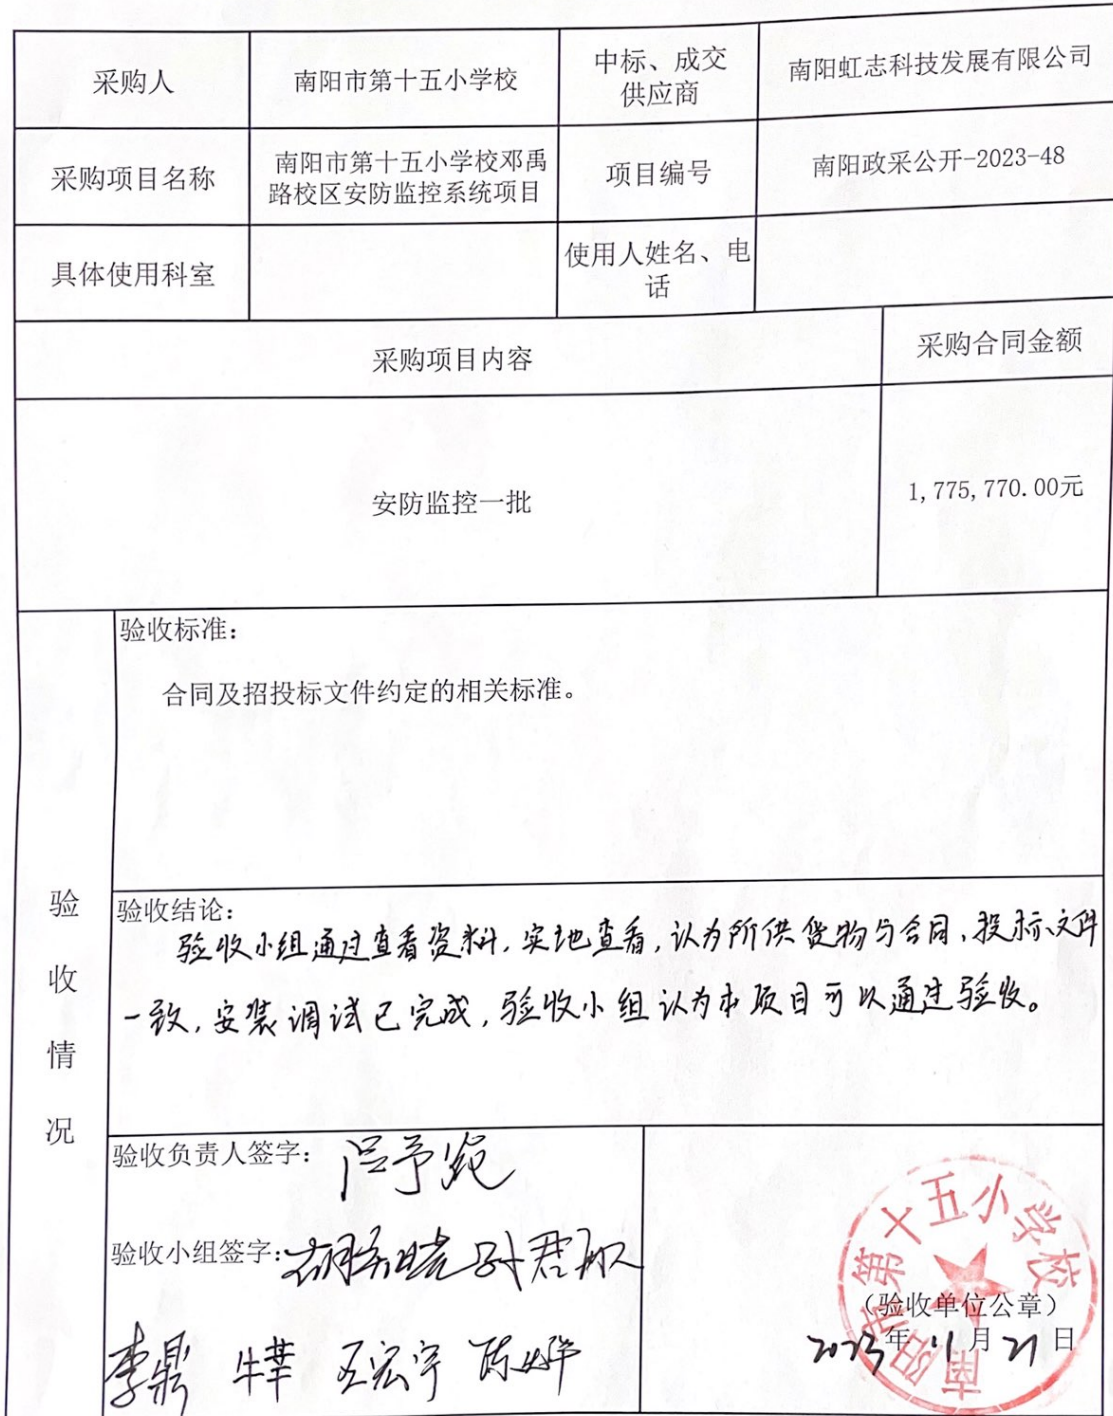 采购人
南阳市第十五小学校
中标、成交
供应商
南阳虹志科技发展有限公司
采购项目名称
南阳市第十五小学校邓禹
路校区安防监控系统项目
项目编号
南阳政采公开-2023-48
具体使用科室
使用人姓名、电
话
采购项目内容
采购合同金额
安防监控一批
1,775,770.00元
验收情况
验收标准：
合同及招投标文件约定的相关标准。
验收结论：
验收小组通过查看资料，实地查看，认为所供货物与合同、投标文件
一致，安装调试已完成，验收小组认为本项目可以通过验收。
验收负责人签字：
验收小组签字：
李鼎 王宏宇
南阳市第十五小学校
（验收单位公章）
2023年11月21日